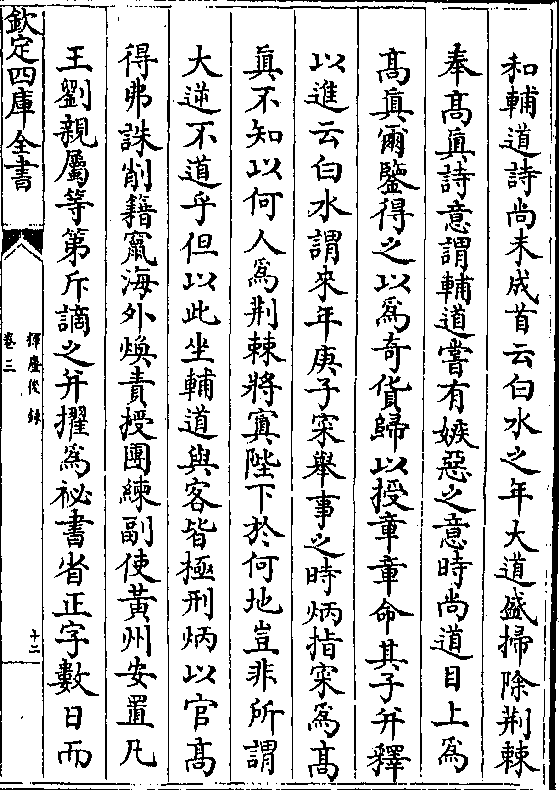 和輔道詩尚未成首云白水之年大道盛掃除荆棘
奉髙眞詩意謂輔道嘗有嫉惡之意時尚道目上為
髙眞爾鑒得之以為奇貨歸以授章章命其子并釋
以進云白水謂來年庚子寀舉事之時炳指寀為髙
眞不知以何人為荆棘將寘陛下於何地豈非所謂
大逆不道乎但以此坐輔道與客皆極刑炳以官髙
得弗誅削籍竄海外煥責授團練副使黄州安置凡
王劉親屬等第斥謫之并擢為祕書省正字數日而
欽定四庫全書
揮麈後録
卷三
十二